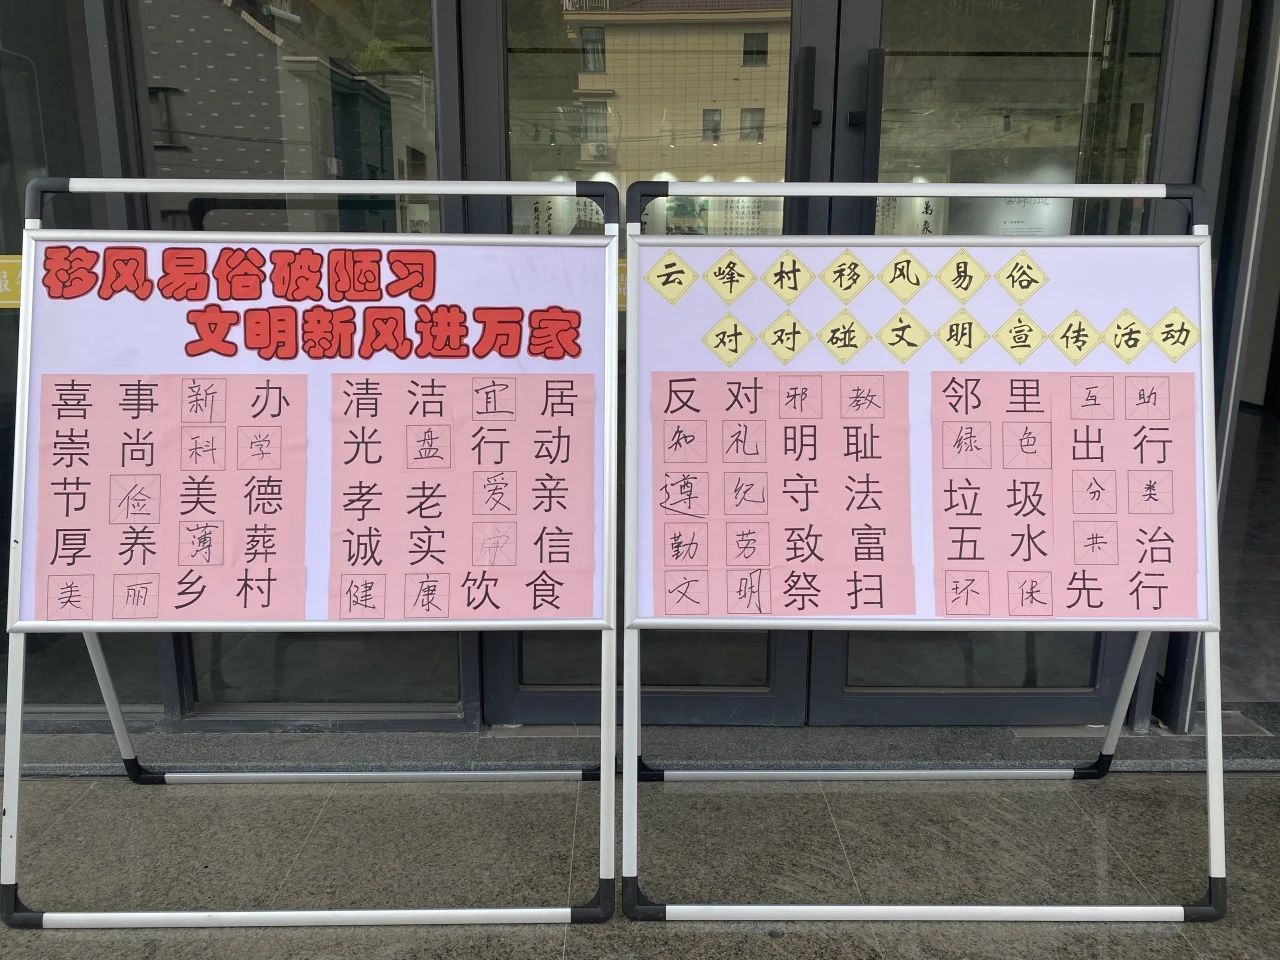 移风易俗破陋习
文明新风进万家
喜事新办
崇尚科学
节俭美德
厚养薄葬
美丽乡村
清洁宜居
光盘行动
孝老爱亲
诚实守信
健康饮食
云峰村移风易俗
对对碰文明宣传活动
反对邪教
知礼明耻
遵纪守法
勤劳致富
文明祭扫
邻里互助
绿色出行
垃圾分类
五水共治
环保先行
萬象